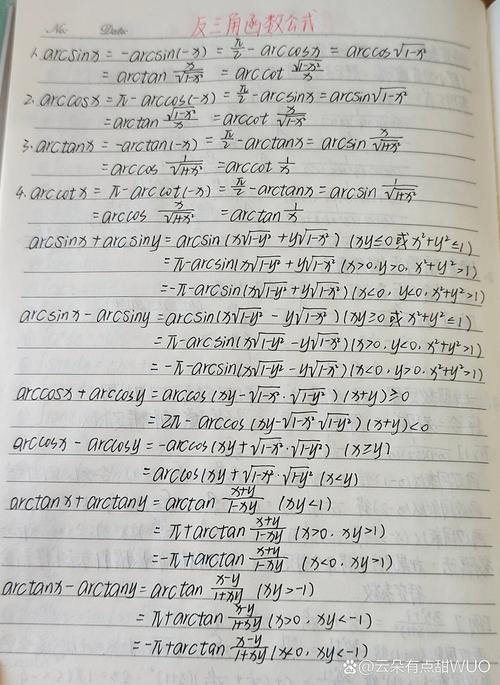 No:
Date:
反三角函数公式
1. arcsinx = -arcsin(-x) = π/2 - arccosx = arccos√(1-x²)
= arctan x/√(1-x²) = arccot √(1-x²)/x
2. arccosx = π - arccos(-x) = π/2 - arcsinx = arcsin√(1-x²)
= arctan √(1-x²)/x = arccot x/√(1-x²)
3. arctanx = -arctan(-x) = π/2 - arctanx = arcsin x/√(1+x²)
= arccos 1/√(1+x²) = arccot 1/x
4. arccotx = π - arccot(-x) = π/2 - arctanx = arcsin 1/√(1+x²)
= arccos x/√(1+x²) = arctan 1/x
arcsinx + arcsiny = arcsin(x√(1-y²) + y√(1-x²)) (xy≤0 或 x²+y²≤1)
= π - arcsin(x√(1-y²) + y√(1-x²)) (x>0, y>0, x²+y²>1)
= -π - arcsin(x√(1-y²) + y√(1-x²)) (x<0, y<0, x²+y²>1)
arcsinx - arcsiny = arcsin(x√(1-y²) - y√(1-x²)) (xy≥0 或 x²+y²≤1)
= π - arcsin(x√(1-y²) - y√(1-x²)) (x>0, y<0, x²+y²>1)
= -π - arcsin(x√(1-y²) - y√(1-x²)) (x<0, y>0, x²+y²>1)
arccosx + arccosy = arccos(xy - √(1-x²)·√(1-y²)) (x+y)≥0
= 2π - arccos(xy - √(1-x²)√(1-y²)) (x+y)<0
arccosx - arccosy = -arccos(xy + √(1-x²)·√(1-y²)) (x≥y)
= arccos(xy + √(1-x²)·√(1-y²)) (x<y)
arctanx + arctany = arctan (x+y)/(1-xy) (xy<1)
= π + arctan (x+y)/(1-xy) (x>0, xy>1)
= -π + arctan (x+y)/(1-xy) (x<0, xy>1)
arctanx - arctany = arctan (x-y)/(1+xy) (xy>-1)
= π + arctan (x-y)/(1+xy) (x>0, xy<-1)
= -π + arctan (x-y)/(1+xy) (x<0, xy<-1)
@云朵有点甜WUO